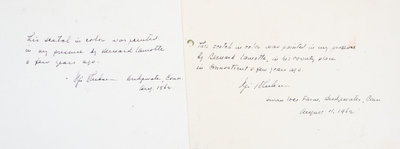 This sketch in color was painted
in my presence by Bernard Lamotte
a few years ago.
Bridgewater, Conn.
Aug. 1962
This sketch in color was painted in my presence
by Bernard Lamotte, in his country place
in Connecticut a few years ago.
Farm, Bridgewater, Conn
August 11, 1962